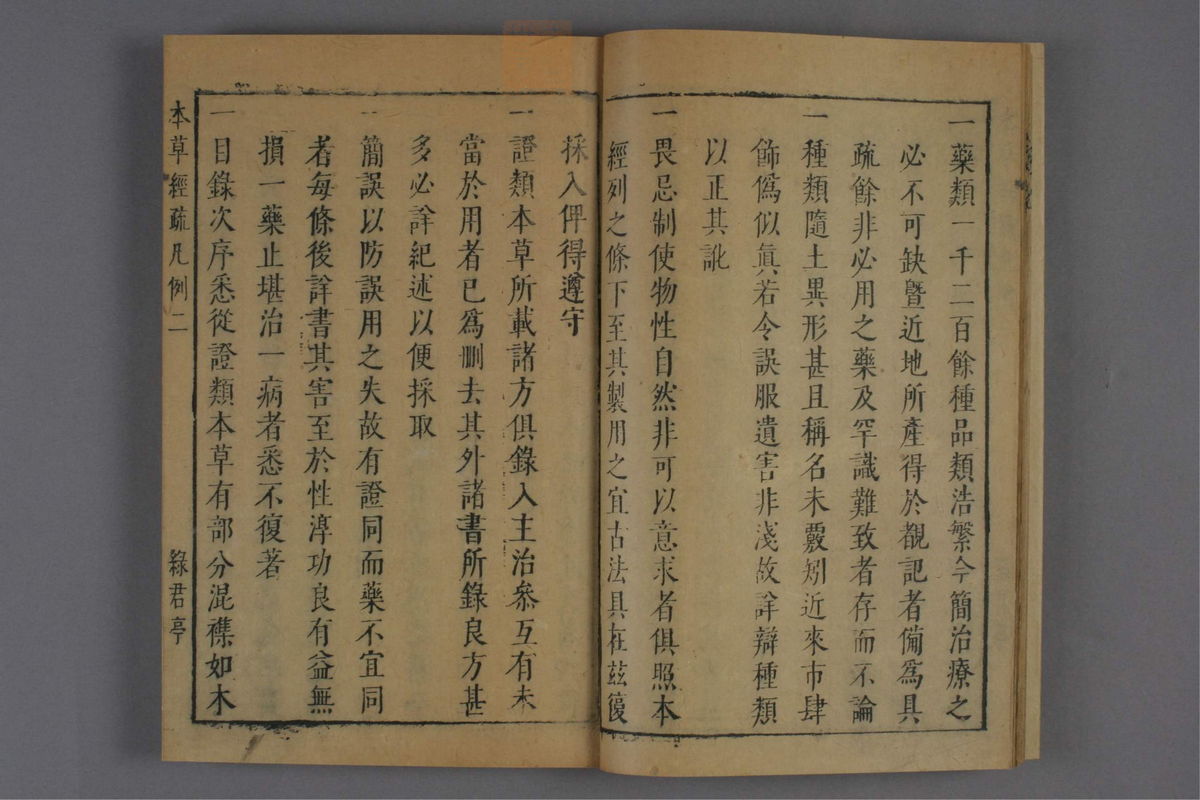 一藥類一千二百餘種品類浩繁今簡治療之
必不可缺暨近地所產得於覩記者備爲具
疏餘非必用之藥及罕識難致者存而不論
一種類隨土異形甚且稱名未覈矧近來市肆
飾僞似眞若令誤服遺害非淺故詳辯種類
以正其訛
一畏忌制使物性自然非可以意求者俱照本
經列之條下至其製用之宜古法具在茲復
採入俾得遵守
一證類本草所載諸方俱錄入主治叅互有未
當於用者已爲刪去其外諸書所錄良方甚
多必詳紀述以便採取
一簡誤以防誤用之失故有證同而藥不宜同
者每條後詳書其害至於性淳功良有益無
損一藥止堪治一病者悉不復著
一目錄次序悉從證類本草有部分混襍如木
本草經疏凡例二
綠君亭